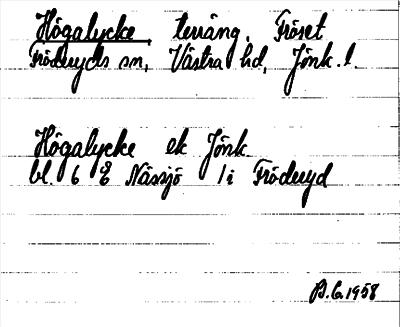 Högalycke, terräng. Fröset
Fröderyds sn, Västra hd, Jönk. l.
Högalycke ek Jönk.
bl. 6 E Nässjö 1i Fröderyd
B.G. 1958